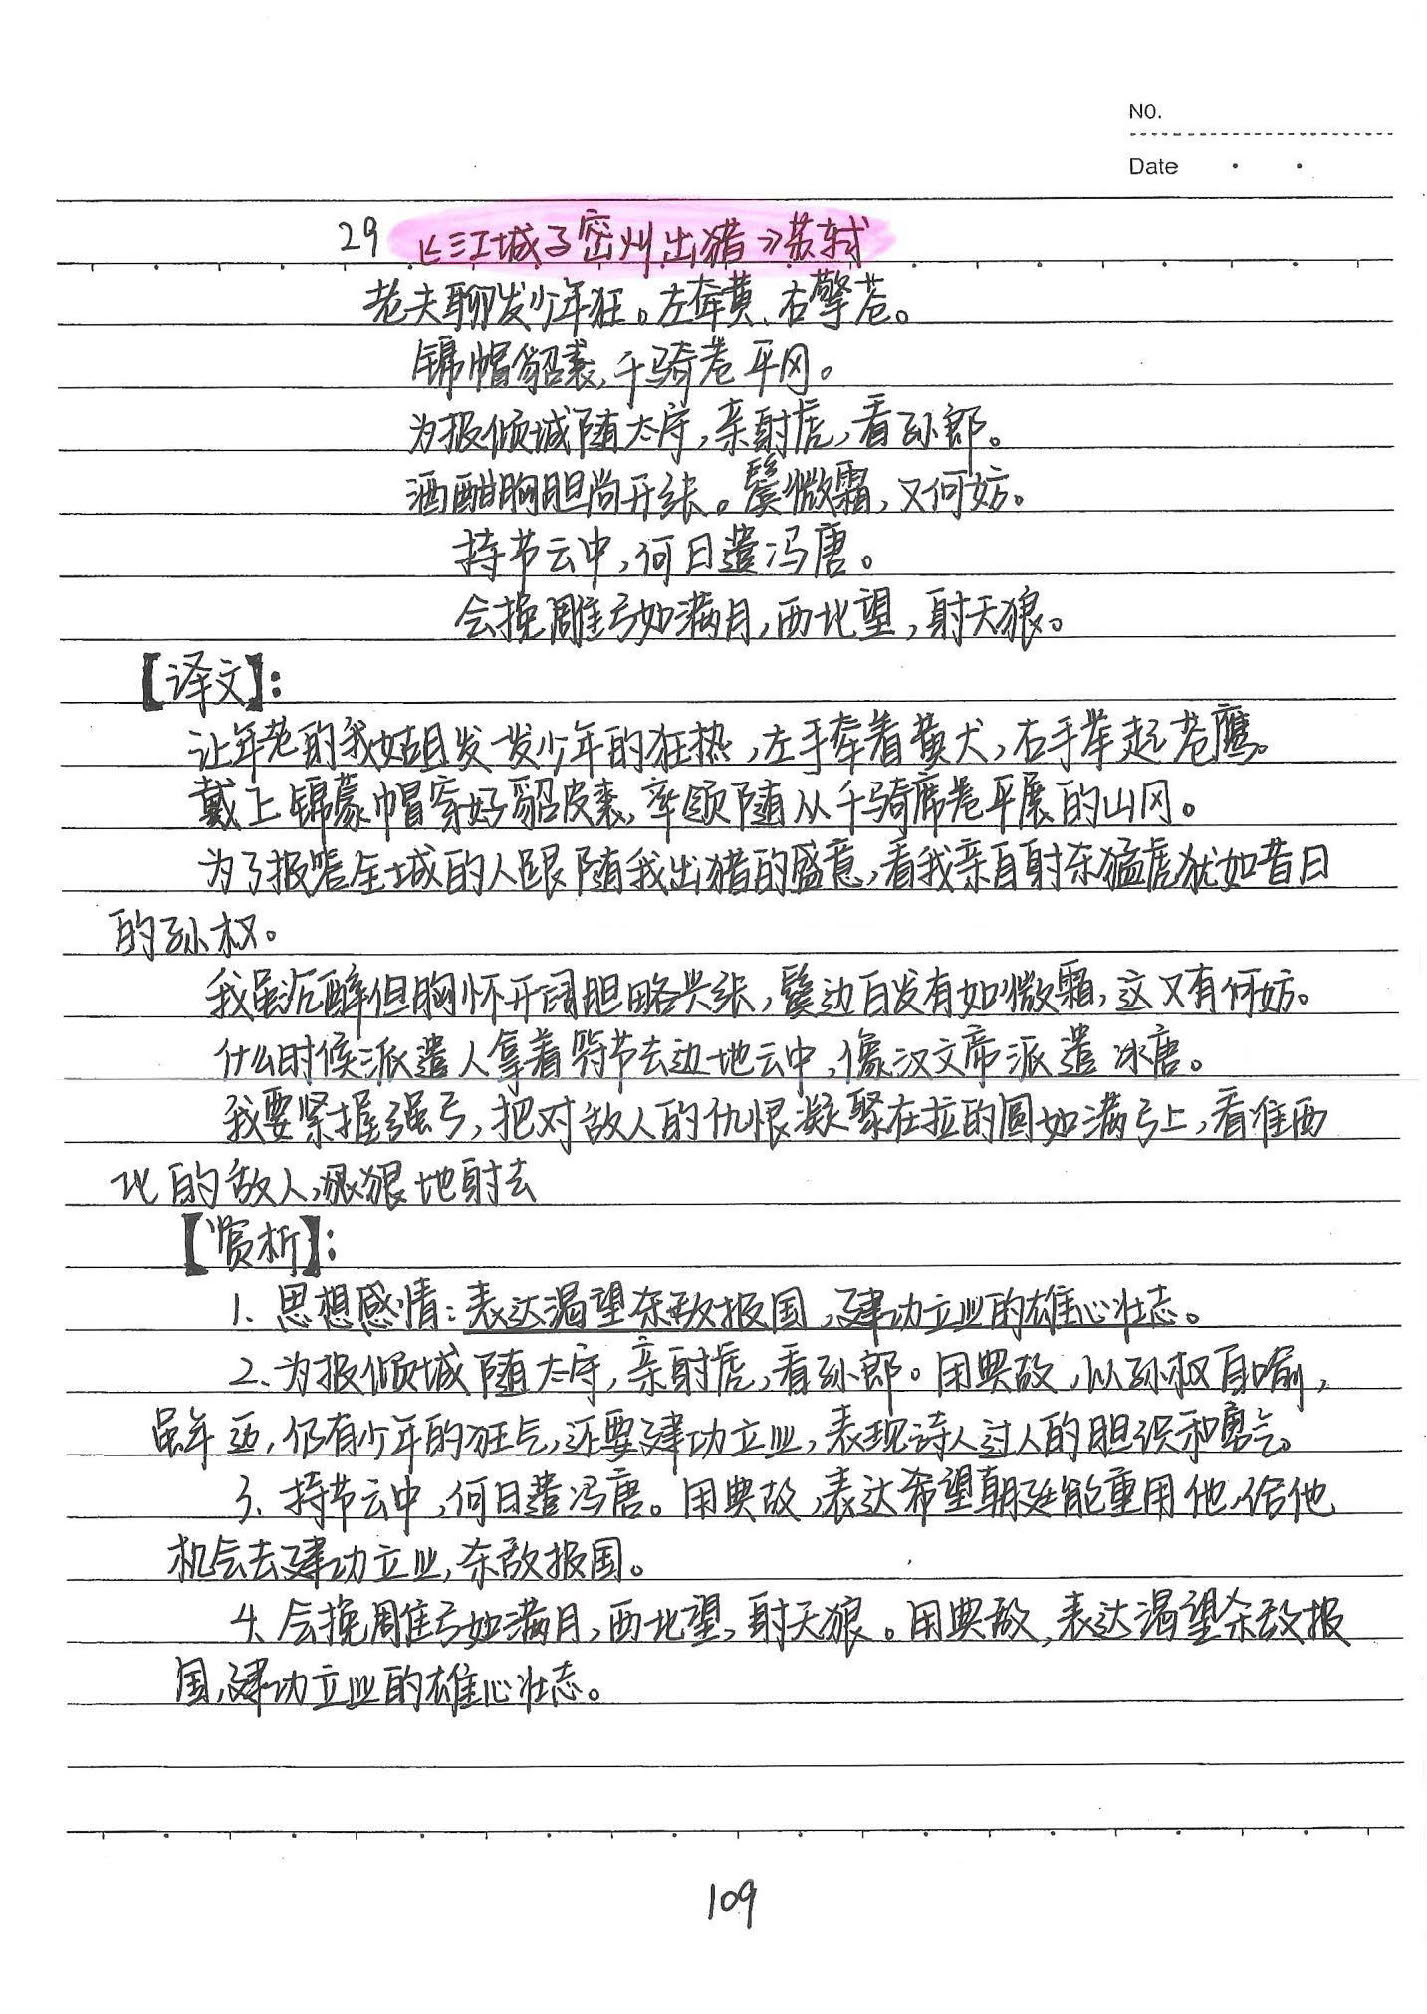 NO.
Date
29 《江城子密州出猎》苏轼
老夫聊发少年狂。左牵黄、右擎苍。
锦帽貂裘,千骑卷平冈。
为报倾城随太守,亲射虎,看孙郎。
酒酣胸胆尚开张。鬓微霜,又何妨。
持节云中,何日遣冯唐。
会挽雕弓如满月,西北望,射天狼。
【译文】:
让年老的我姑且发一发少年的狂热,左手牵着黄犬,右手举起苍鹰。
戴上锦蒙帽穿好貂皮裘,率领随从千骑席卷平展的山冈。
为了报答全城的人跟随我出猎的盛意,看我亲自射杀猛虎犹如昔日
的孙权。
我虽沉醉但胸怀开阔胆略兴张,鬓边白发有如微霜,这又有何妨。
什么时候派遣人拿着符节去边地云中,像汉文帝派遣冯唐。
我要紧握强弓,把对敌人的仇恨凝聚在拉的圆如满弓上,看准西
北的敌人,狠狠地射去
【赏析】:
1、思想感情:表达渴望杀敌报国,建功立业的雄心壮志。
2、为报倾城随太守,亲射虎,看孙郎。用典故,以孙权自喻,
虽年迈,仍有少年的狂气,还要建功立业,表现诗人过人的胆识和勇气。
3、持节云中,何日遣冯唐。用典故,表达希望朝廷能重用他,给他
机会去建功立业,杀敌报国。
4、会挽雕弓如满月,西北望,射天狼。用典故,表达渴望杀敌报
国,建功立业的雄心壮志。
109